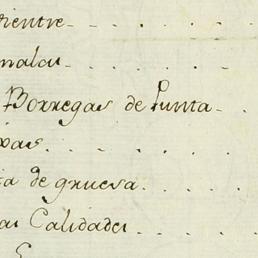 vientre - . . . .
malas - . . . .
Borregas de Punta - .
xas . . . . . .
ia de gruesa . . . .
as Calidades . . . .